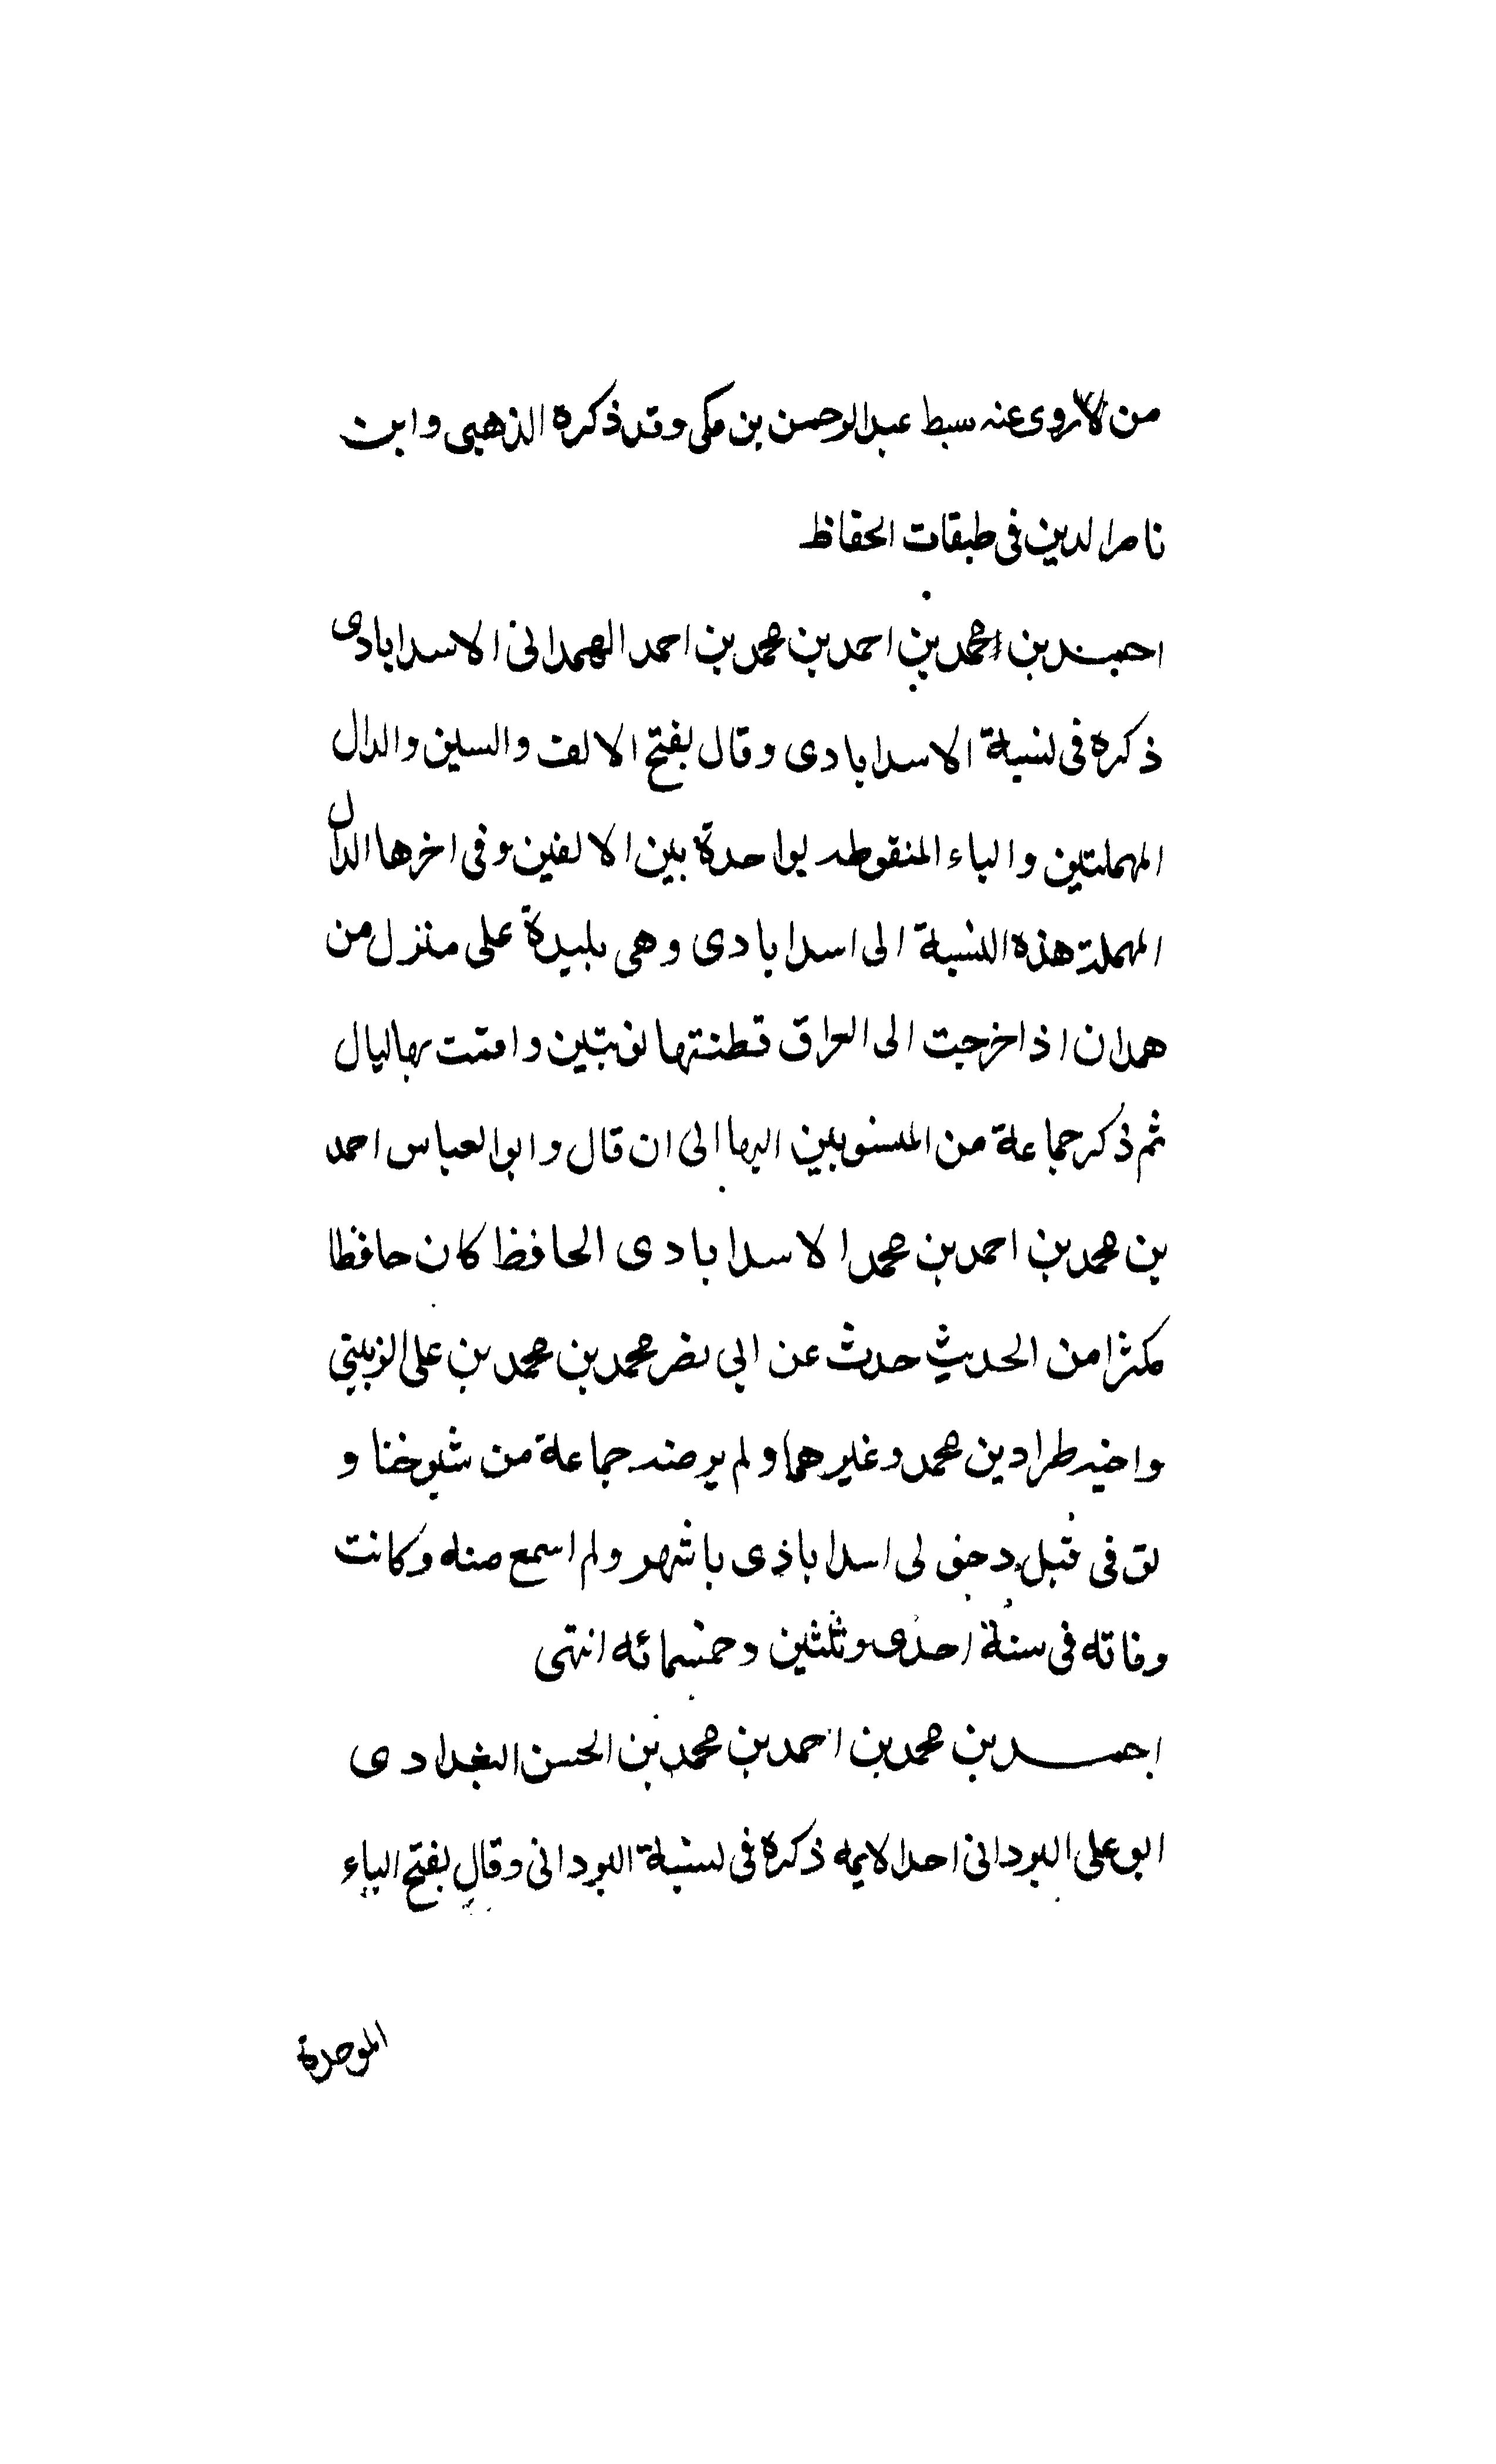 من لاروى عنه سبط عبدالرحمن بن مكى وقد ذكره الذهبى وابن
ناصرالدين فى طبقات الحفاظ
احمد بن محمد بن احمد بن محمد بن احمد الهمدانى الاسدابادى
ذكره فى نسبة الاسدابادى وقال بفتح الالف والسين والدال
المهملتين والباء المنقوطه بواحدة بين الالفين وفى اخرها الدال
المهملة هذه النسبة الى اسدابادى وهى بليدة على منزل من
همدان اذا خرجت الى العراق قطنتها نوبتين واقمت بها ليال
ثم ذكر جماعة من المنسوبين اليها الى ان قال وابوالعباس احمد
بن محمد بن احمد بن محمد الاسدابادى الحافظ كان حافظا
مكثرا من الحديث حدث عن ابى نصر محمد بن محمد بن على الزينبى
واخيه طراد بن محمد وغيرهما ولم ير منه جماعة من شيوخنا و
توفى قبل دخولى اسداباذى باشهر ولم اسمع منه وكانت
وفاته فى سنة احدى وثلثين وخمسمائه انتهى
احمد بن محمد بن احمد بن محمد بن الحسن البغدادى
ابو على البردانى احد الايمه ذكره فى نسبة البردانى وقال بفتح الباء
الموحدة